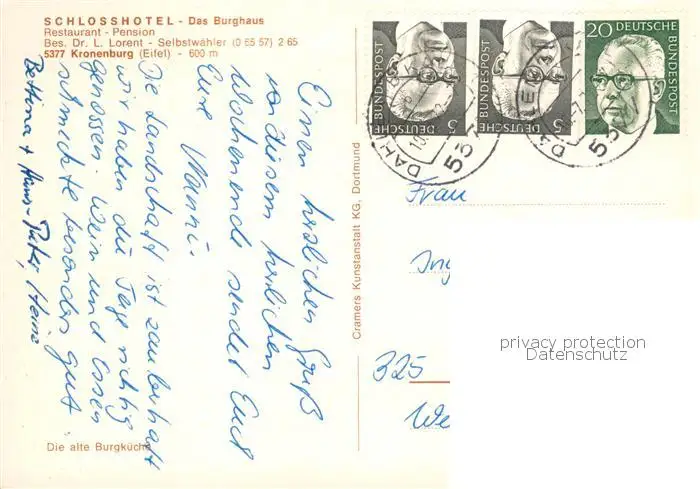 SCHLOSSHOTEL - Das Burghaus
Restaurant - Pension
Bes. Dr. L. Lorent - Selbstwähler (0 65 57) 2 65
5377 Kronenburg (Eifel) - 600 m
Einen herzlichen Gruß
von diesem herrlichen
Wochenende sendet Euch
Eure Nanni.
Die Landschaft ist zauberhaft
wir haben die Tage richtig
genossen. Wein und Essen
schmeckte besonders gut
Bettina + Hans-Peter, Heinz
Die alte Burgküche
Cramers Kunstanstalt KG, Dortmund
DEUTSCHE BUNDESPOST
5
DEUTSCHE BUNDESPOST
5
20 DEUTSCHE
BUNDESPOST
DAH
53
53
Frau
Ing
325
We
privacy protection
Datenschutz